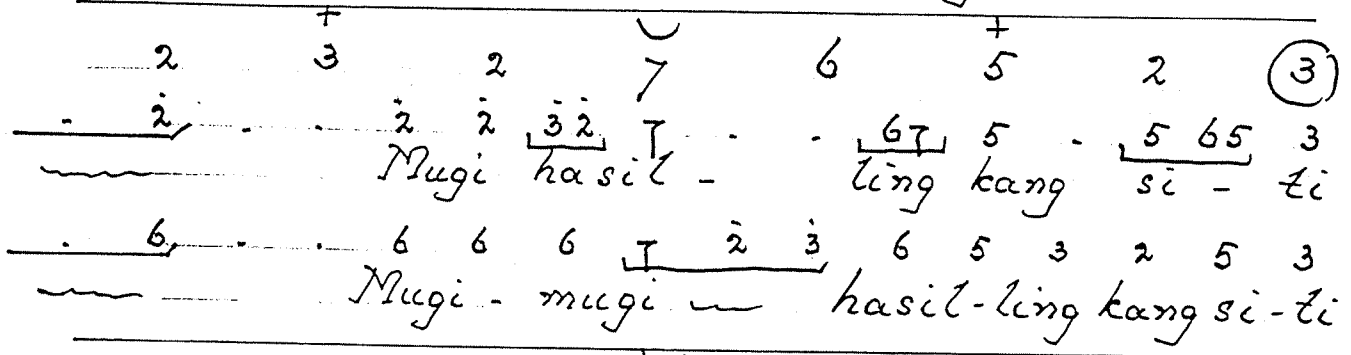 + ⌣ +
2 3 2 7 6 5 2 ③
. 2̇ . . 2̇ 2̇ 3̇ 2̇ 7 . . 6 7 5 . 5 6 5 3
Mugi hasil - ling kang si - ti
. 6 . . 6 6 6 7 2̇ 3̇ 6 5 3 2 5 3
Mugi - mugi hasil - ling kang si - ti